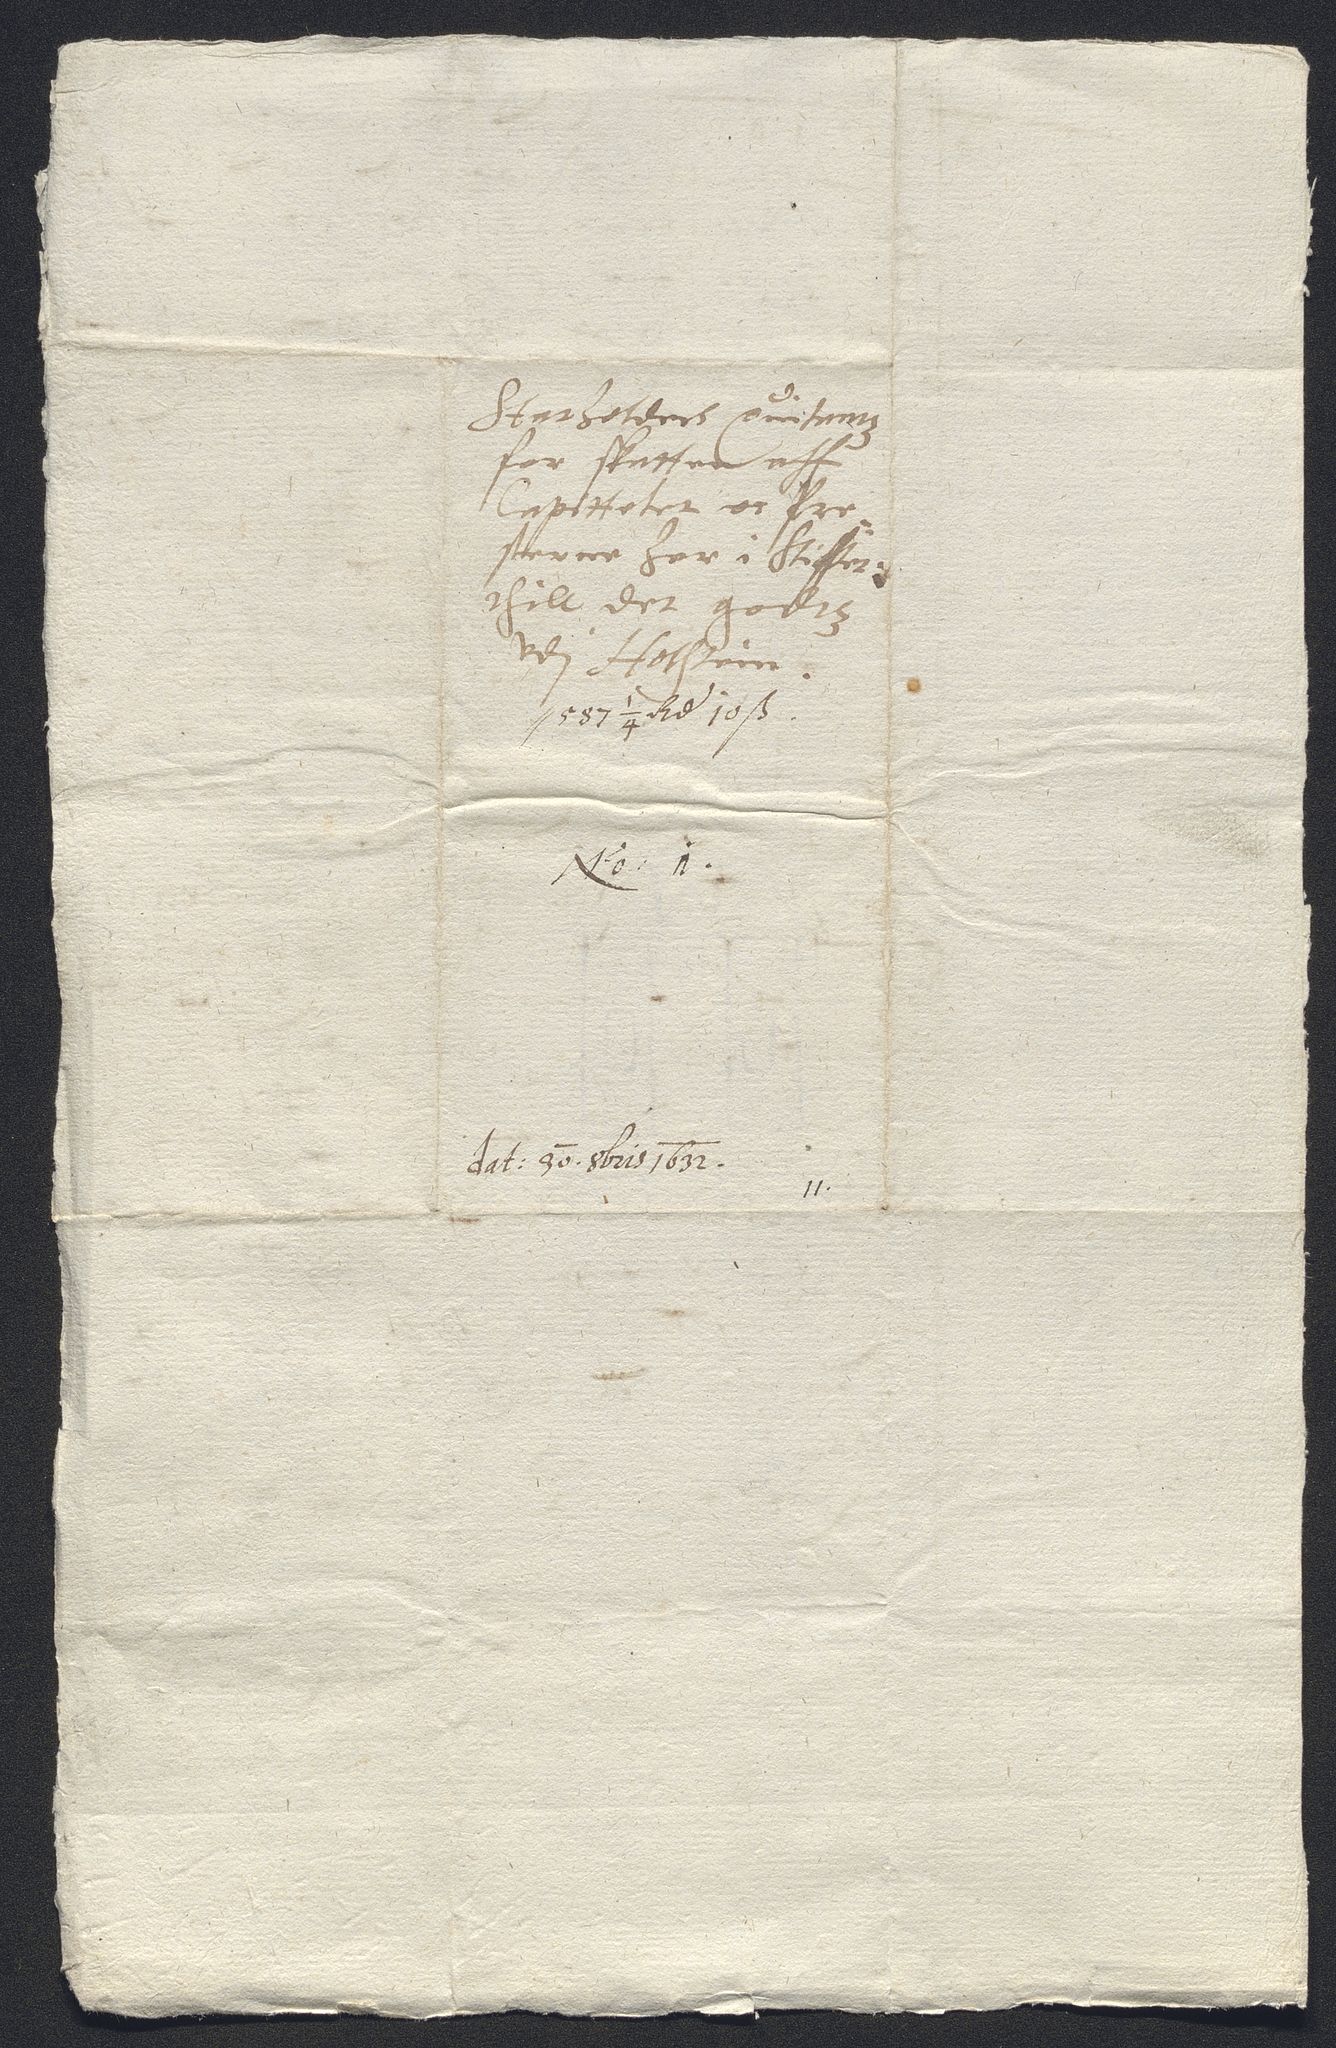 Statholders quitantz
for skatten aff
Capittelet oc Pre-
sterne her i Stifftet
thill det godtz
vdj Holstein.
587 1/4 Rd 10 ß.
No: 11.
dat: 30. 8bris 1632.
11.